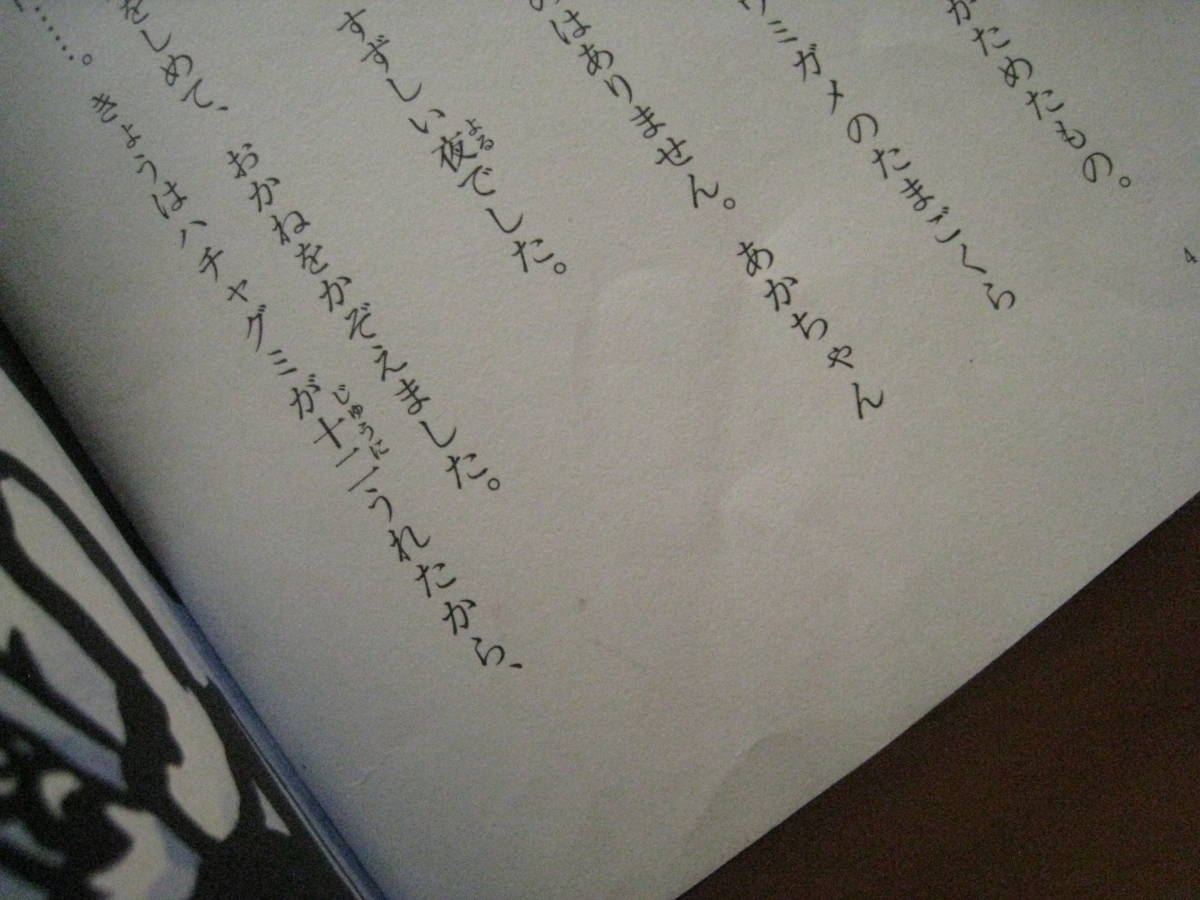 かためたもの。
ウミガメのたまごくら
はありません。 あかちゃん
すずしい夜でした。
をしめて、 おかねをかぞえました。
……。 きょうはハチャグミが十二うれたから、
よる
じゅうに
4